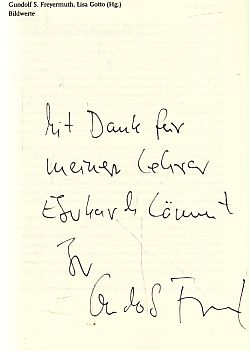 Gundolf S. Freyermuth, Lisa Gotto (Hg.)
Bildwerte
Mit Dank für
meinen Lehrer
Eberhard Lämmert
Ihr
Gundolf